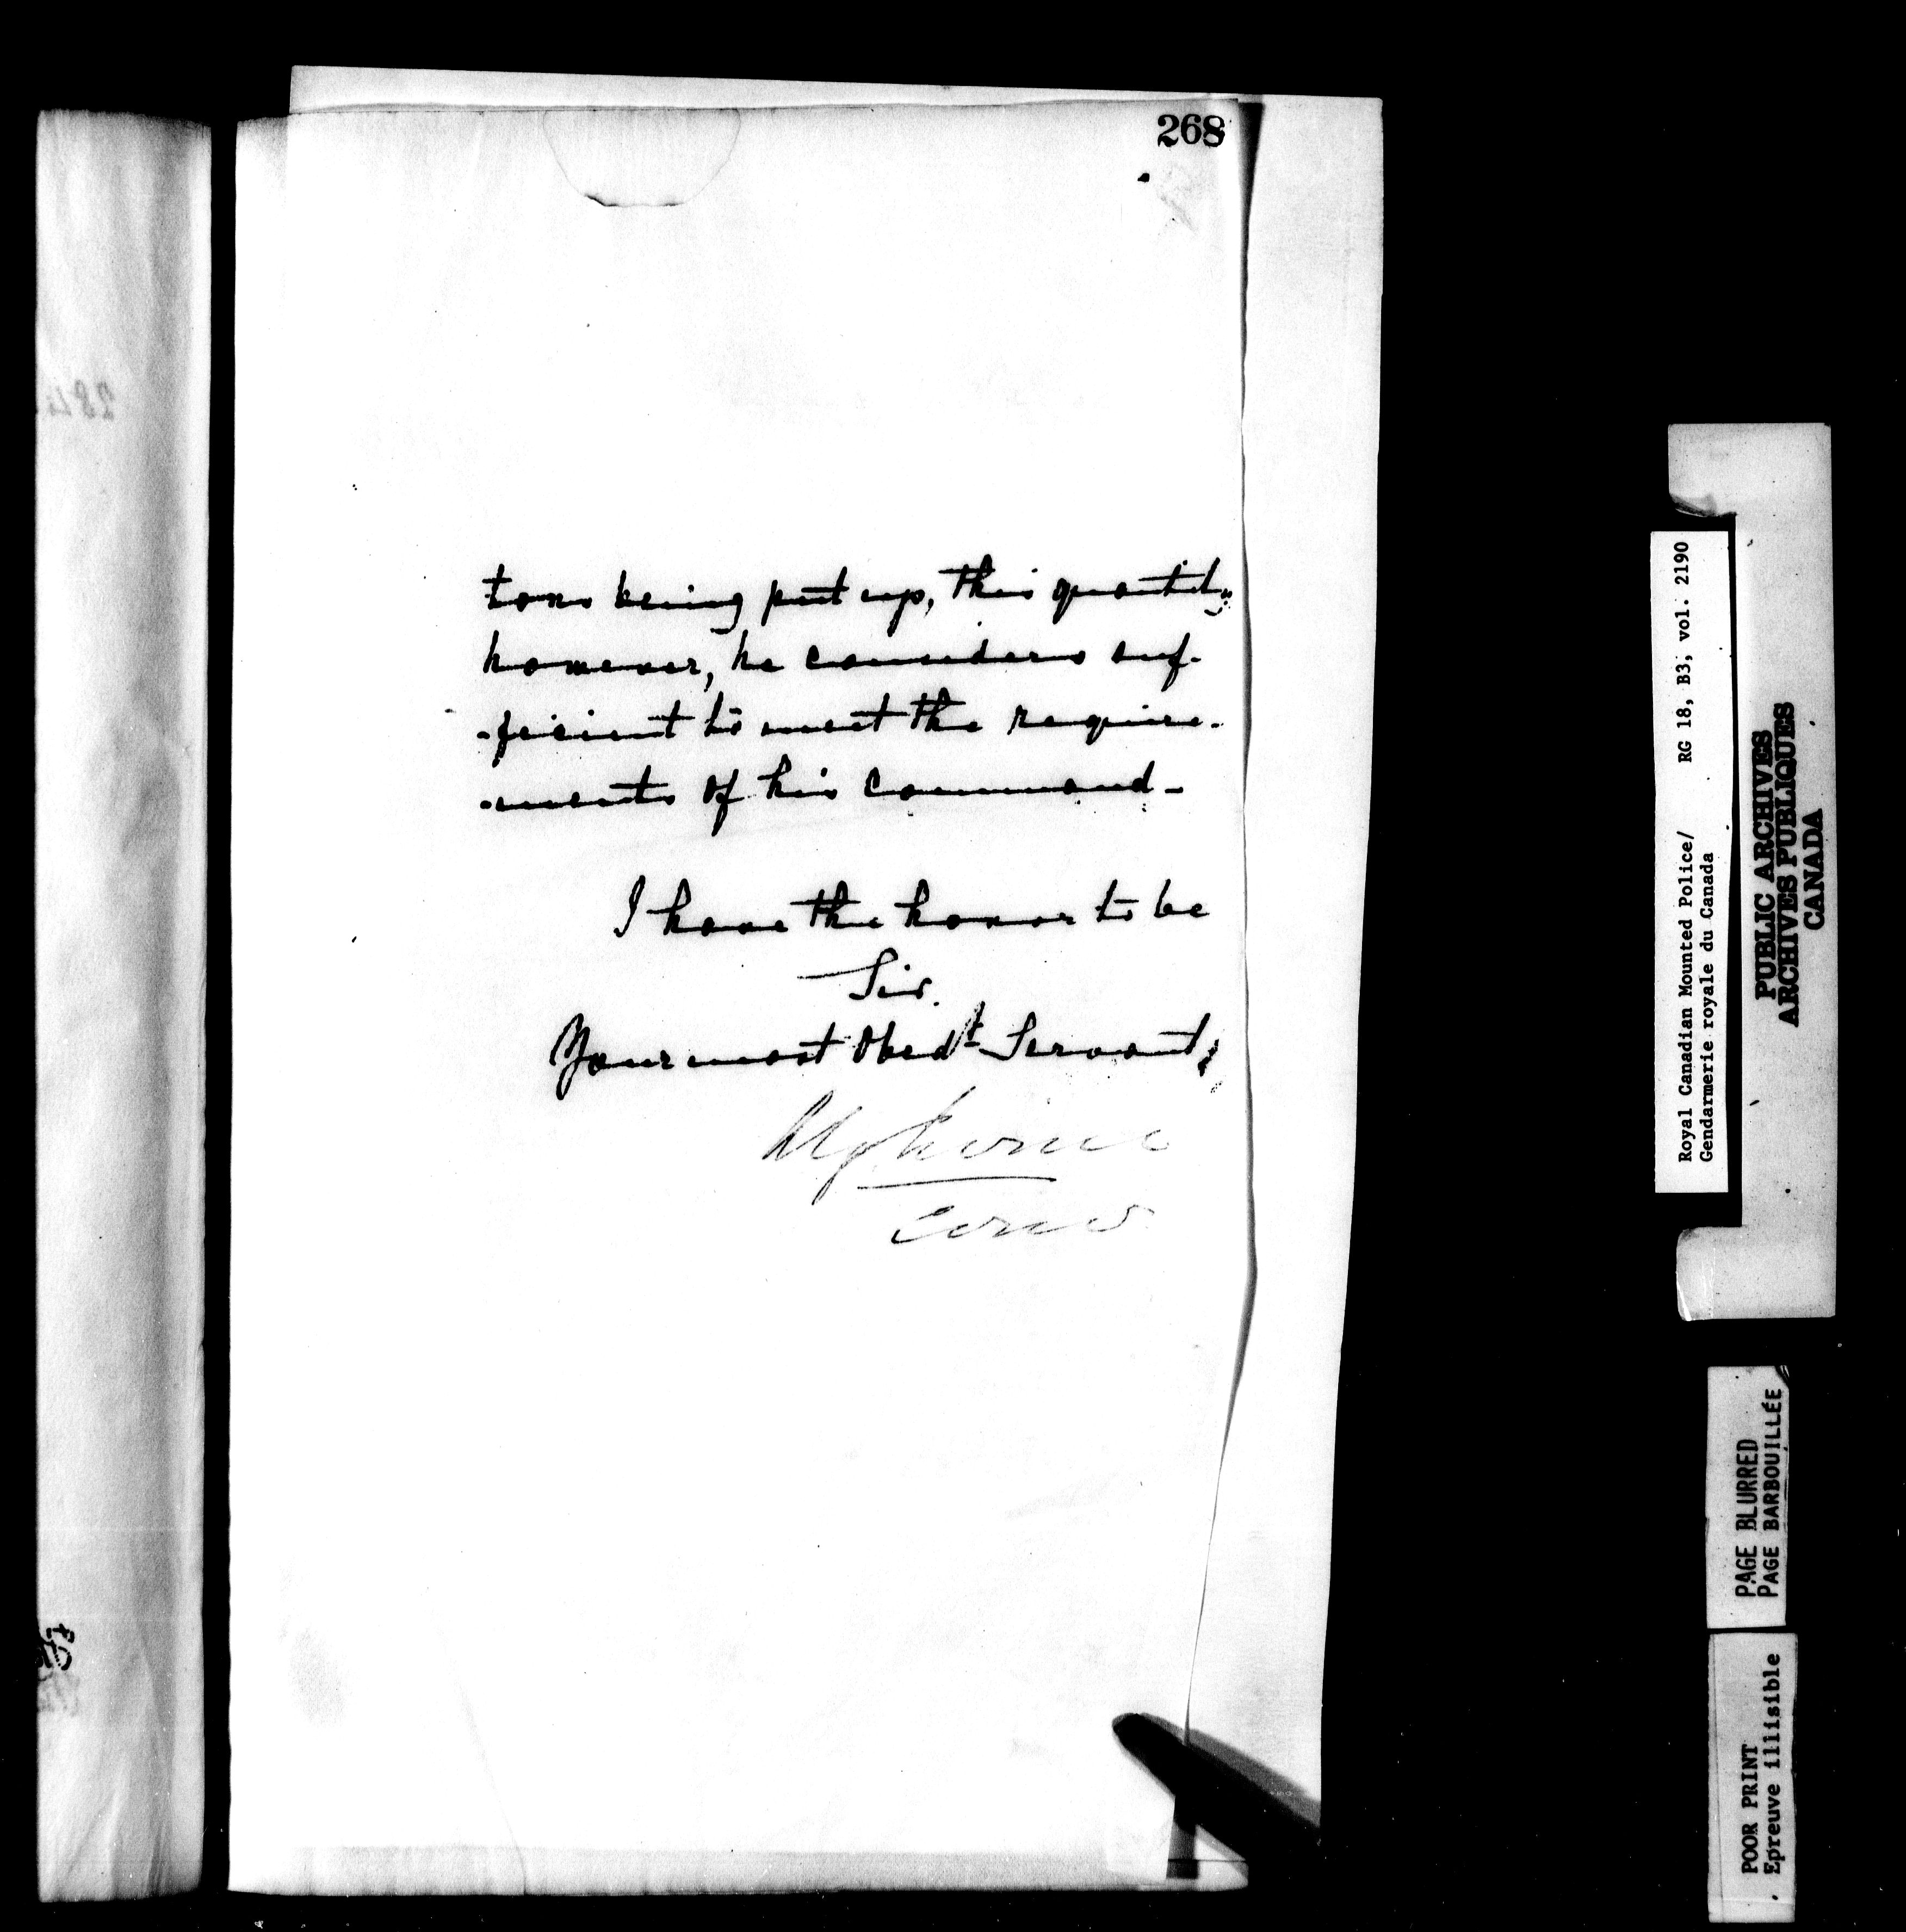 268
tons being put up, this quantity
however, he considers suf-
-ficient to meet the require-
-ments of his command-
I have the honor to be
Sir,
Your most Obedt Servant,
Royal Canadian Mounted Police/ RG 18, B3, vol. 2190
Gendarmerie royale du Canada
PUBLIC ARCHIVES
ARCHIVES PUBLIQUES
CANADA
PAGE BLURRED
PAGE BARBOUILLÉE
POOR PRINT
Epreuve illisible